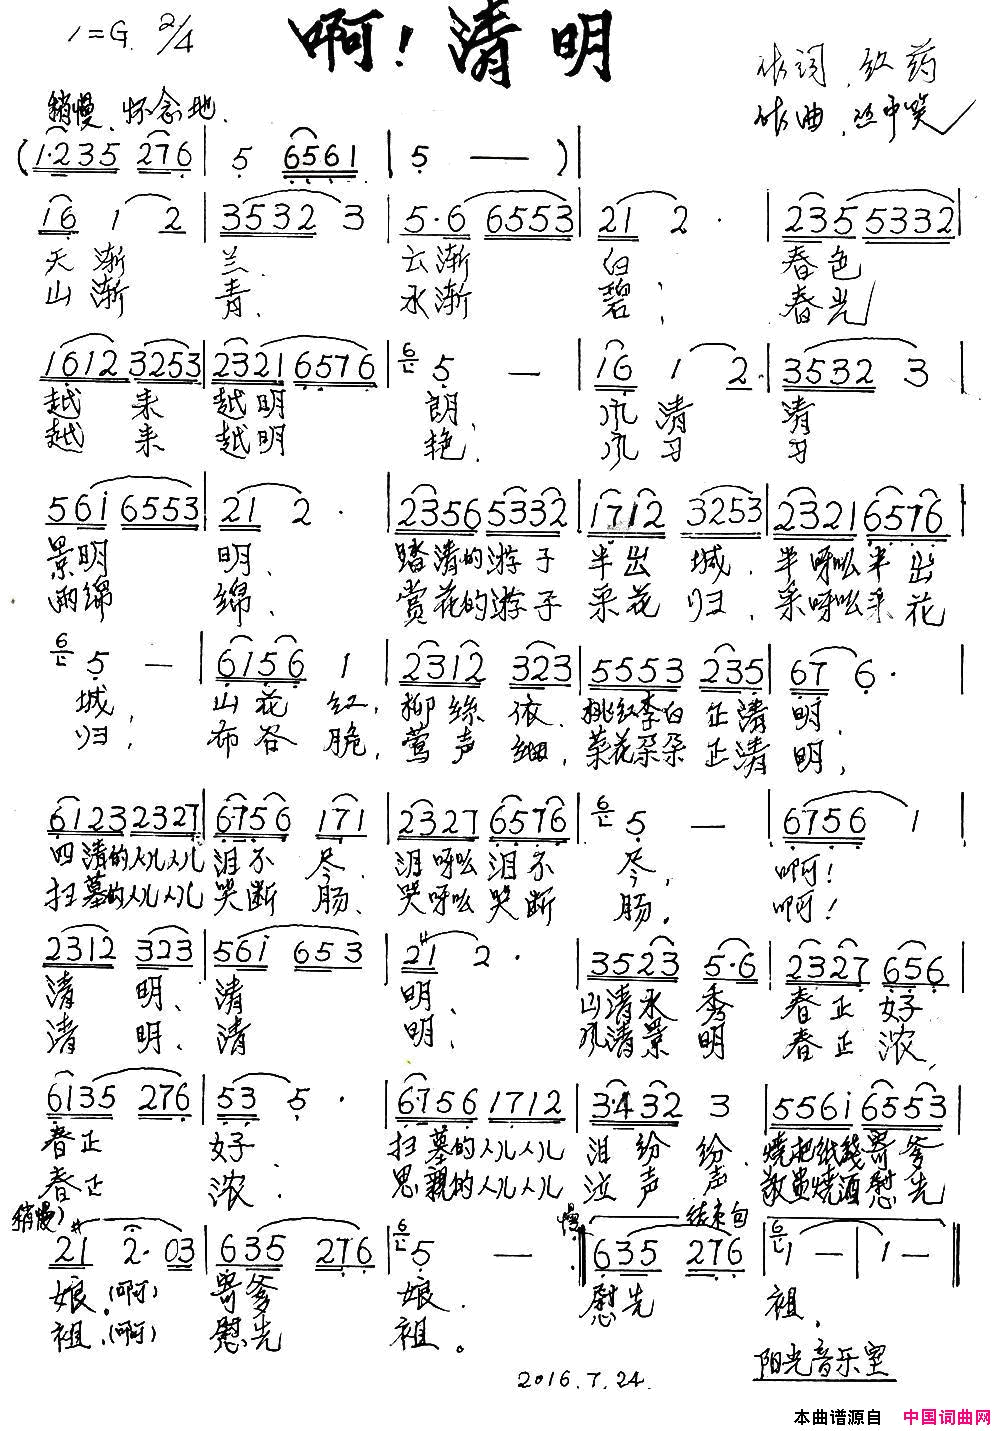 1=G 2/4
啊！清明
作词 红药
作曲
稍慢 怀念地
(1·235 276 | 5 6561 | 5 — — )
16 1 2 | 3532 3 | 5·6 6553 | 21 2 · | 235 5332
天渐 兰、 云渐 白 春色
山渐 青、 水渐 碧； 春光
1612 3253 | 2321 6576 | 5 — | 16 1 2 · | 3532 3
越 来 越明 朗、 风 清 清
越 来 越明 艳、 风 习 习
561 6553 | 21 2 · | 2356 5332 | 1712 3253 | 2321 6576
景明 明、 踏清的游子 半出 城、半呀么半出
雨绵 绵、 赏花的游子 采花 归、采呀么采花
5 — | 6156 1 | 2312 323 | 5553 235 | 67 6 ·
城， 山花 红，柳丝 依，桃红李白 正清 明，
归， 布谷 脆，莺声 细，菜花朵朵 正清 明，
6123 2327 | 6·756 171 | 2327 6576 | 5 — | 6756 1
四清的人儿人儿 泪不 尽、 泪呀么泪不 尽， 啊！
扫墓的人儿人儿 哭断 肠、 哭呀么哭断 肠。 啊！
2312 323 | 561 653 | 21 2 · | 3523 5·6 | 2327 656
清 明、 清 明、 山清水 秀 春正 好
清 明、 清 明、 风清景 明 春正 浓，
6135 276 | 53 5 · | 6·756 1712 | 3·432 3 | 5561 6553
春正 好 扫墓的人儿人儿 泪纷 纷、烧把纸钱寄爹
春正 浓、 思親的人儿人儿 泣声 声 敬盅烧酒慰先
稍慢 慢 结束句
21 2· 03 | 635 276 | 5 — | 635 276 | 1 — | 1 —
娘。(啊) 寄爹 娘、 慰先 祖、
祖、(啊) 慰先 祖。
阳光音乐室
2016.7.24.
本曲谱源自 中国词曲网